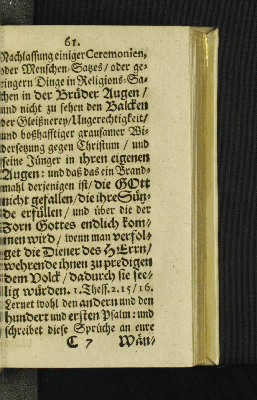 61.
Nachlassung einiger Ceremonien,
oder Menschen-Satzes/ oder ge-
ringern Dinge in Religions-Sa-
chen in der Brüder Augen/
und nicht zu sehen den Balcken
der Gleißnerey/Ungerechtigkeit/
und boßhafftiger grausamer Wi-
dersetzung gegen Christum/ und
seine Jünger in ihren eigenen
Augen: und daß das ein Brand-
mahl derjenigen ist/ die GOtt
nicht gefallen/ die ihre Sün-
de erfüllen/ und über die der
Zorn Gottes endlich kom-
men wird/ wenn man verfol-
get die Diener des HErrn/
wehrende ihnen zu predigen
dem Volck/ dadurch sie see-
lig würden. 1. Thess. 2. 15/16.
Lernet wohl den andern und den
hundert und ersten Psalm: und
schreibet diese Sprüche an eure
C 7 Wän-